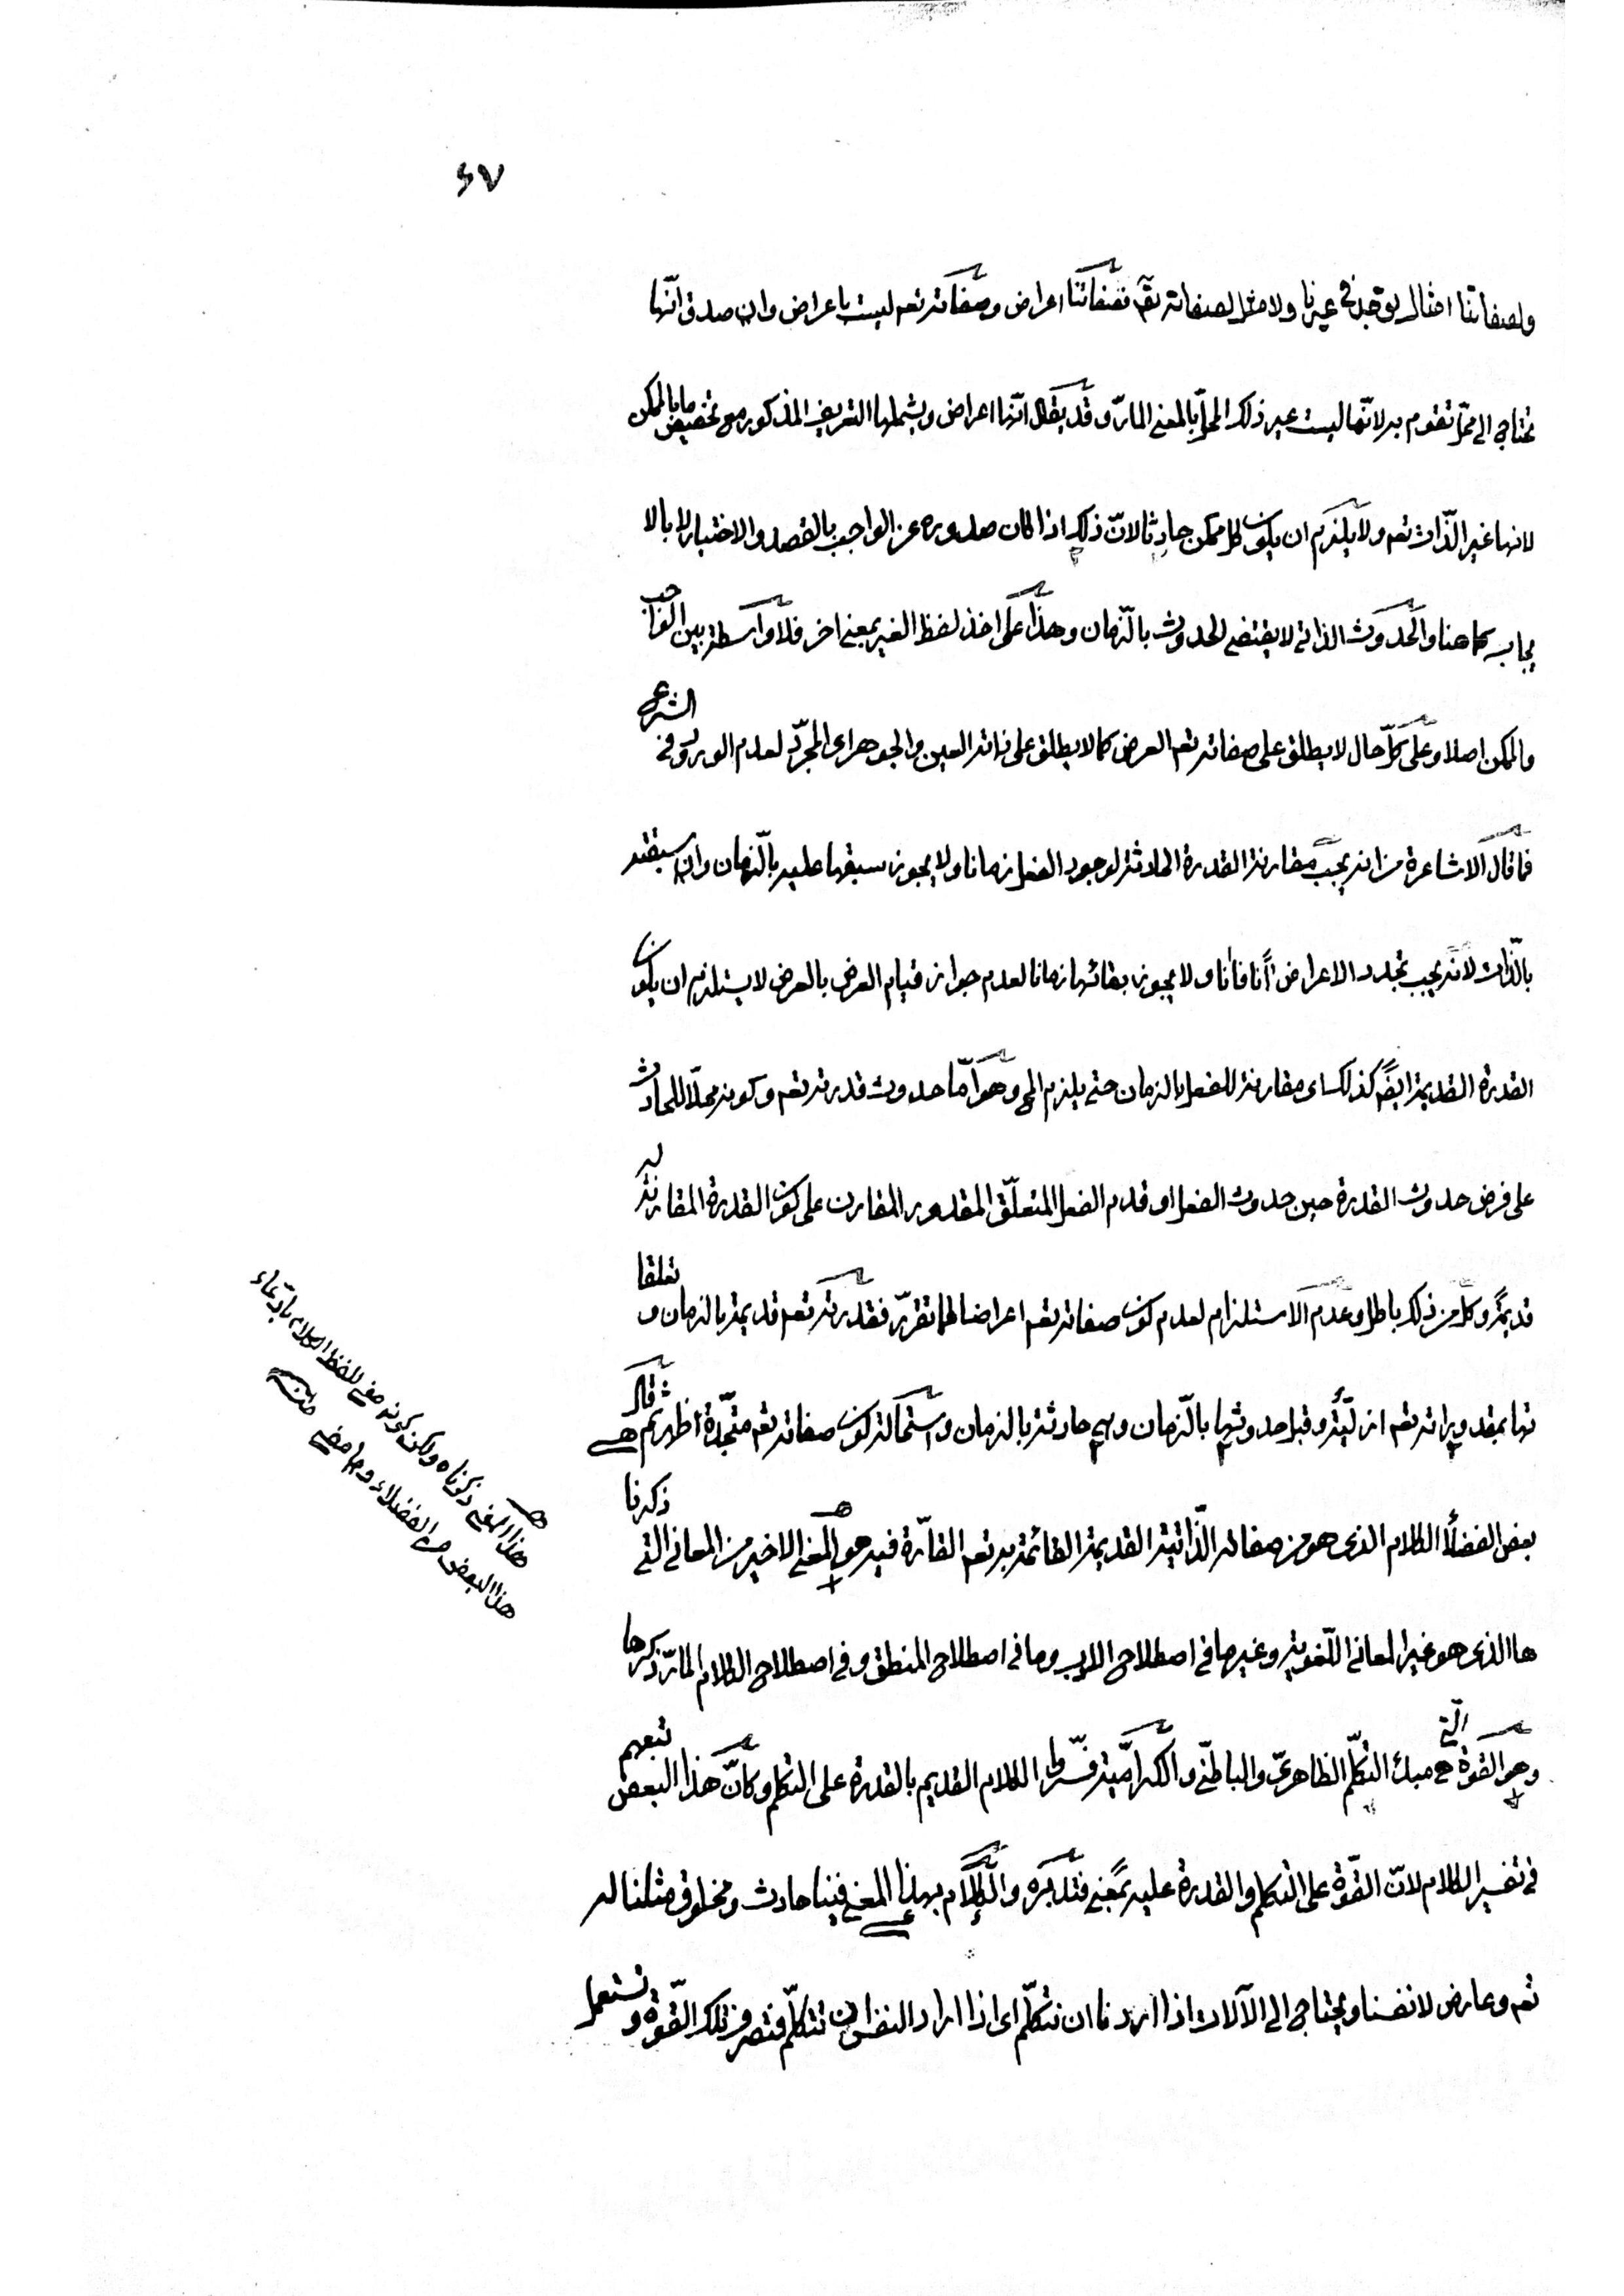 ٤٧
ولصفاتنا امثال يوجد في غيرنا ولا مثل لصفاته تعم فصفاتنا اعراض وصفاته تعم ليست باعراض وان صدق انّها
تحتاج الى محلّ تقوم به لانّها ليست غير ذلك المحلّ بالمعنى المارّ وقد يقال انّها اعراض ويشملها التعريف المذكور مع تخصيص ما بالممكن
لانها غير الذّات تعم ولا يلزم ان يكون كل ممكن حادثا لانّ ذلك اذا كان صدوره عن الواجب بالقصد والاختيار لا بالا
يجاب كما هنا والحدوث الذاتي لا يقتضي الحدوث بالزّمان وهذا على اخذ لفظ الغير بمعنى اخر فلا واسطة بين الواجب
والممكن اصلا وعلى كلّ حال لا يطلق على صفاته تعم العرض كما لا يطلق على ذاته العين والجوهر اى المجرّد لعدم الورود في الشرع
فما قال الاشاعرة من انه يجب مقارنة القدرة الحادثة لوجود الفعل زمانا ولا يجوز سبقها عليه بالزّمان وان سبقته
بالذّات لانه يجب تجدد الاعراض اٰنا فاٰنا ولا يجوز بقائها زمانا لعدم جواز قيام العرض بالعرض لا يستلزم ان يكون
القدرة القديمة ايضً كذلك اى مقارنة للفعل بالزمان حتى يلزم المح وهو امّا حدوث قدرته تعم وكونه محلّا للحادث
على فرض حدوث القدرة حين حدوث الفعل او قدم الفعل المتعلّق المقدور المقارن على كون القدرة المقارنة له
قديمةً وكل من ذلك باطل وعدم الاستلزام لعدم كون صفاته تعم اعراضا لما تقرّر فقدرته تعم قديمة بالزمان و تعلقا
تها بمقدوراته تعم ازليّة وقبل حدوثها بالزّمان وهي حادثة بالزمان واستحالة كون صفاته تعم متجدّدة اظهر ثم قال
بعض الفضلأ الكلام الذى هو من صفاته الذّاتية القديمة القائمة به تعم القارّة فيه هو المعنى الاخير من المعاني التي ذكرنا
ها الذى هو غير المعاني اللّغوية وغير ما في اصطلاح الادب وما في اصطلاح المنطق وفي اصطلاح الكلام المارّ ذكرها
وهو القوّة التي هي مبدأ التكلّم الظاهريّ والباطنّي والكراميّة فسّروا الكلام القديم بالقدرة على التكلم وكانّ هذا البعض تبعهم
في تفسير الكلام لانّ القوّة على التكلم والقدرة عليه بمعنىً فتدبّره والكلام بهذا المعنى فينا حادث ومخلوق مثلنا له
تعم وعارض لانفسنا ويحتاج الى الآلات اذا اردنا ان نتكلّم اى اذا اراد النفس ان تتكلّم فتصرف تلك القوّة و تستعمل
هذا المعنى ذكرناه ولكن كونه معنى للفظ الكلام بادّعاء
هذا البعض من الفضلاء وما مضى منه